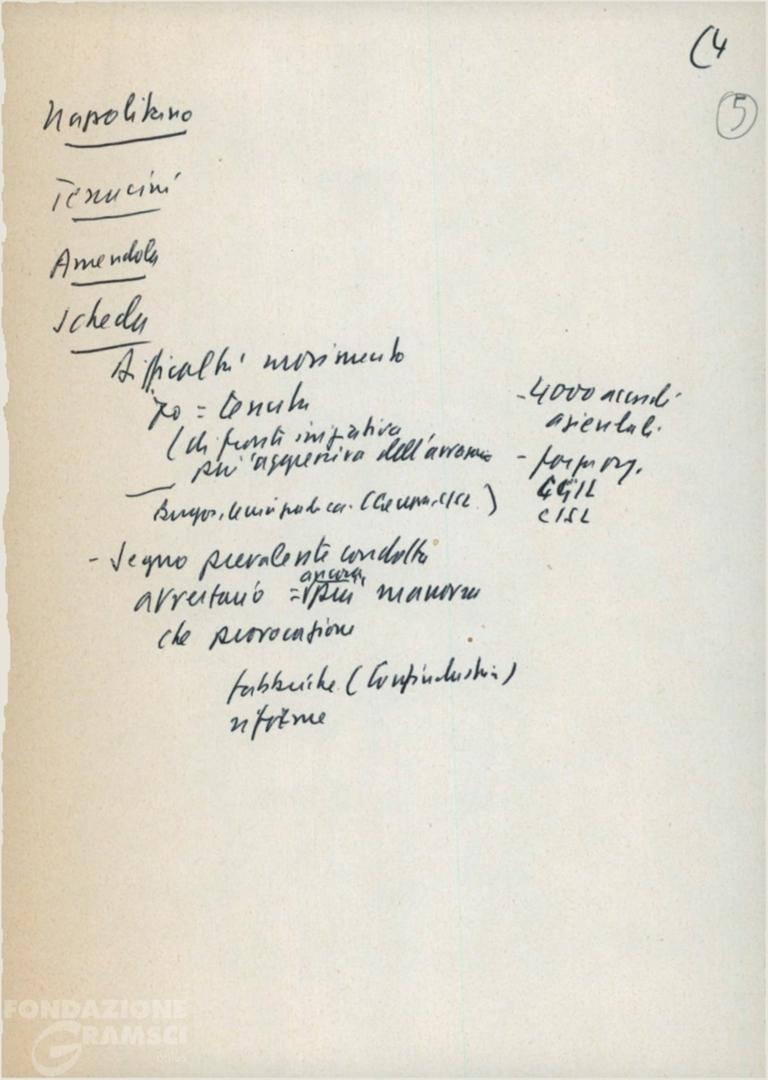 (4
5
Napolitano
Terracini
Amendola
Scheda
difficoltà movimento
70 = tenuta
(di fronte iniziativa
più aggressiva dell'avversario
- 4000 accordi
aziendali.
CGIL
CISL
- Segno prevalente condotta
avversario = ancora più manovra
che provocazione
fabbriche (Confindustria)
riforme
FONDAZIONE
GRAMSCI